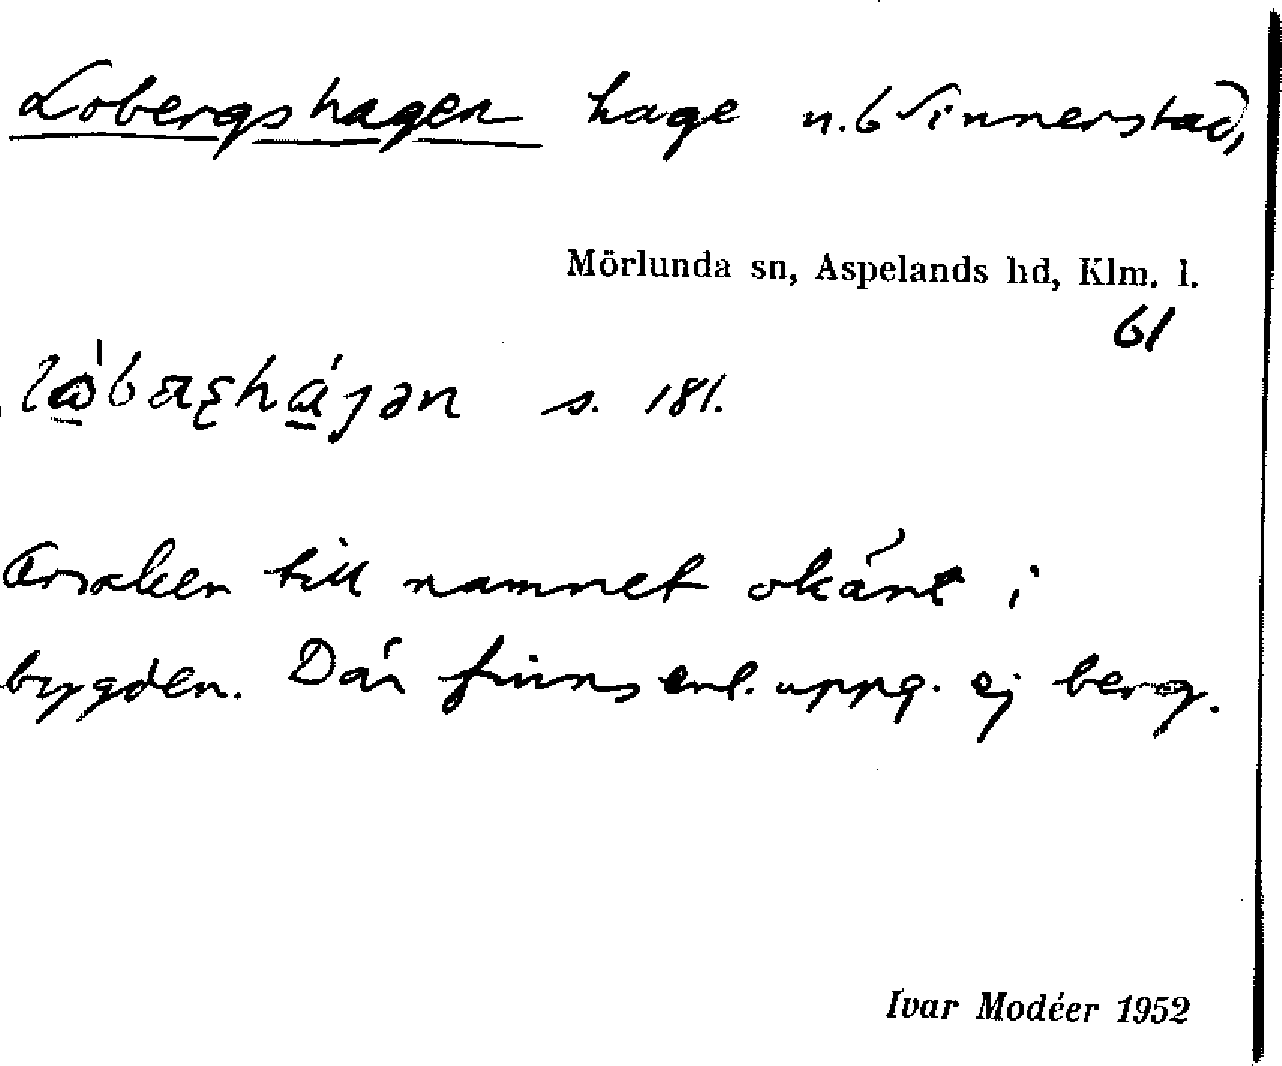 Lobergshagen hage u. 6 Vinnerstad,
Mörlunda sn, Aspelands hd, Klm. l.
61
s. 181.
Orsaken till namnet okänt i
bygden. Där finns enl. uppg. ej berg.
Ivar Modéer 1952